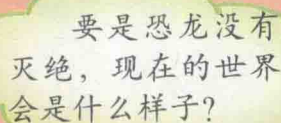 要是恐龙没有
灭绝，现在的世界
会是什么样子？